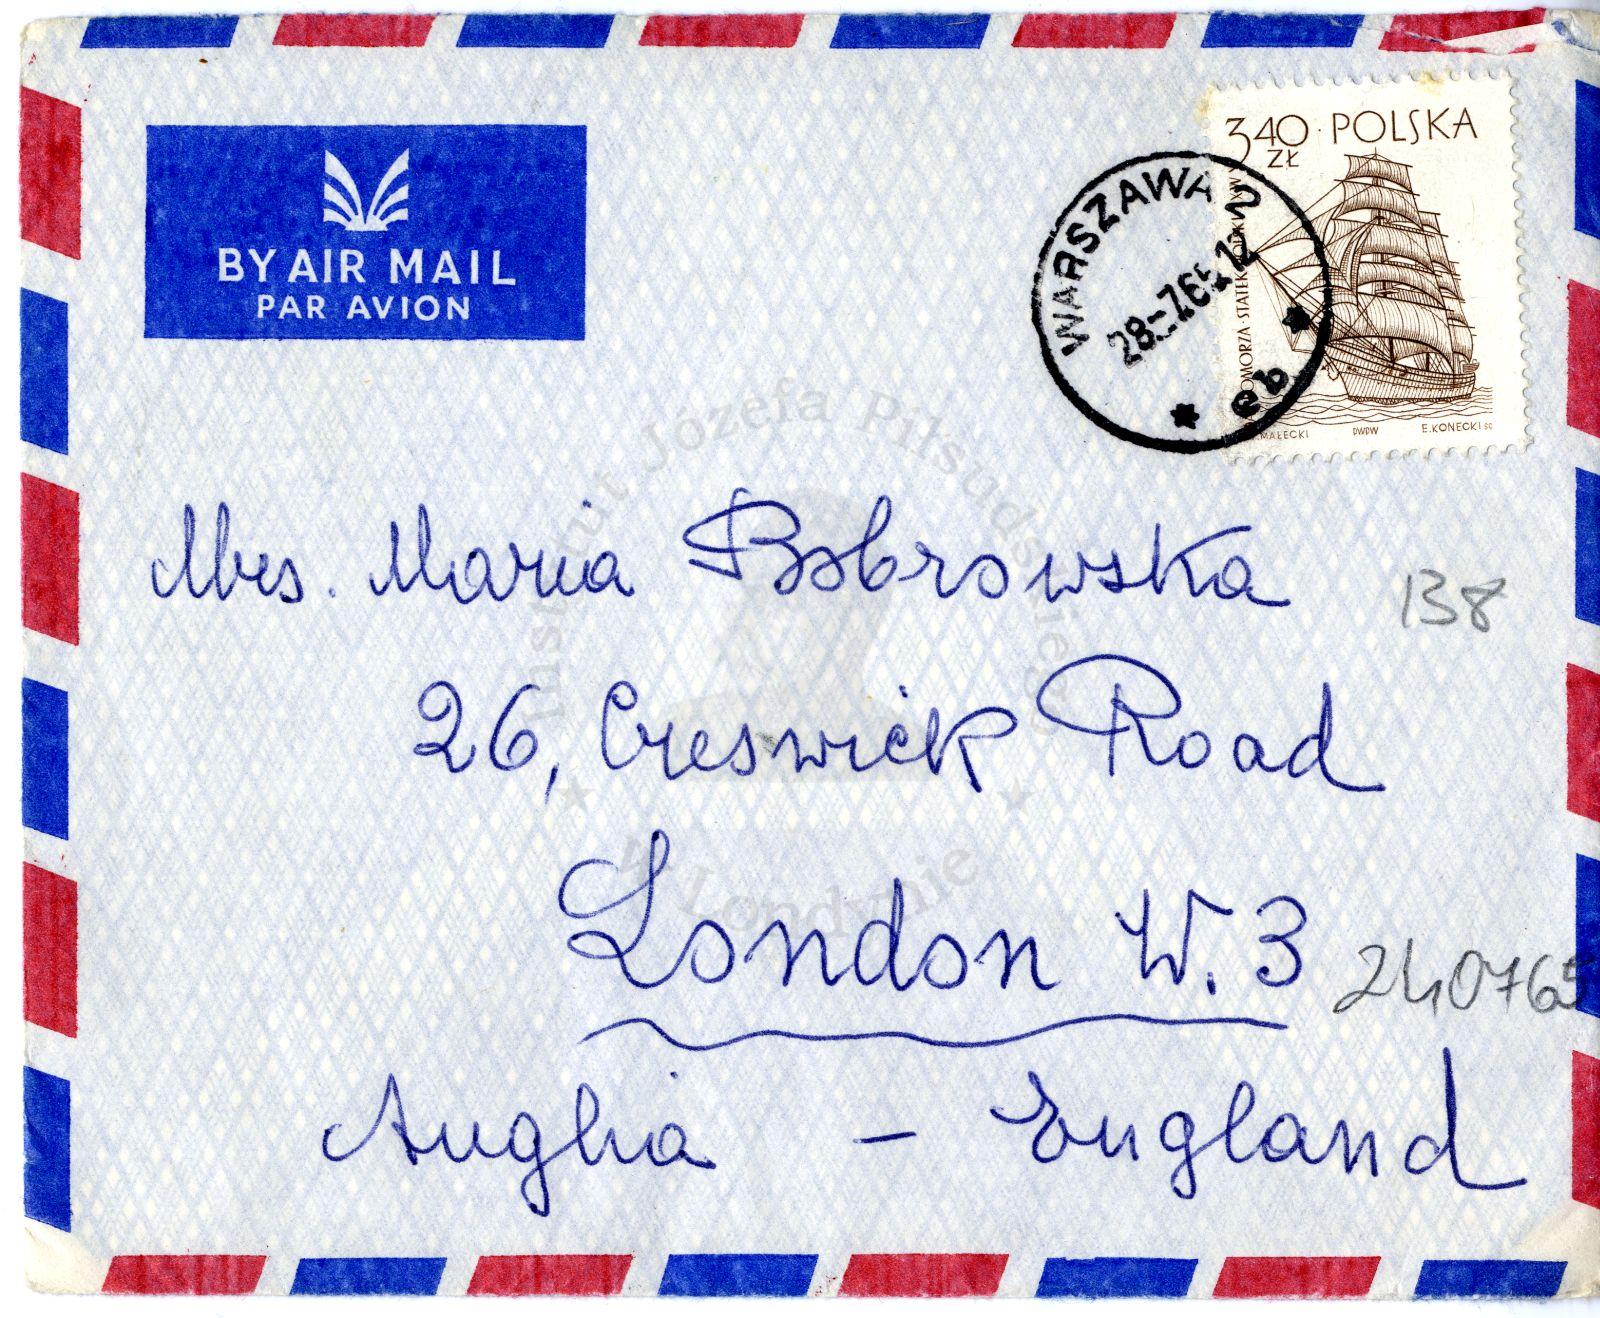 BY AIR MAIL
PAR AVION
3,40 ZŁ POLSKA
WARSZAWA 2
28.-7.65.12
eb
MAŁECKI
PWPW
E. KONECKI SC.
Mrs. Maria Bobrowska
138
26, Creswick Road
London W. 3
240765
Anglia – England
Instytut Józefa Piłsudskiego
w Londynie